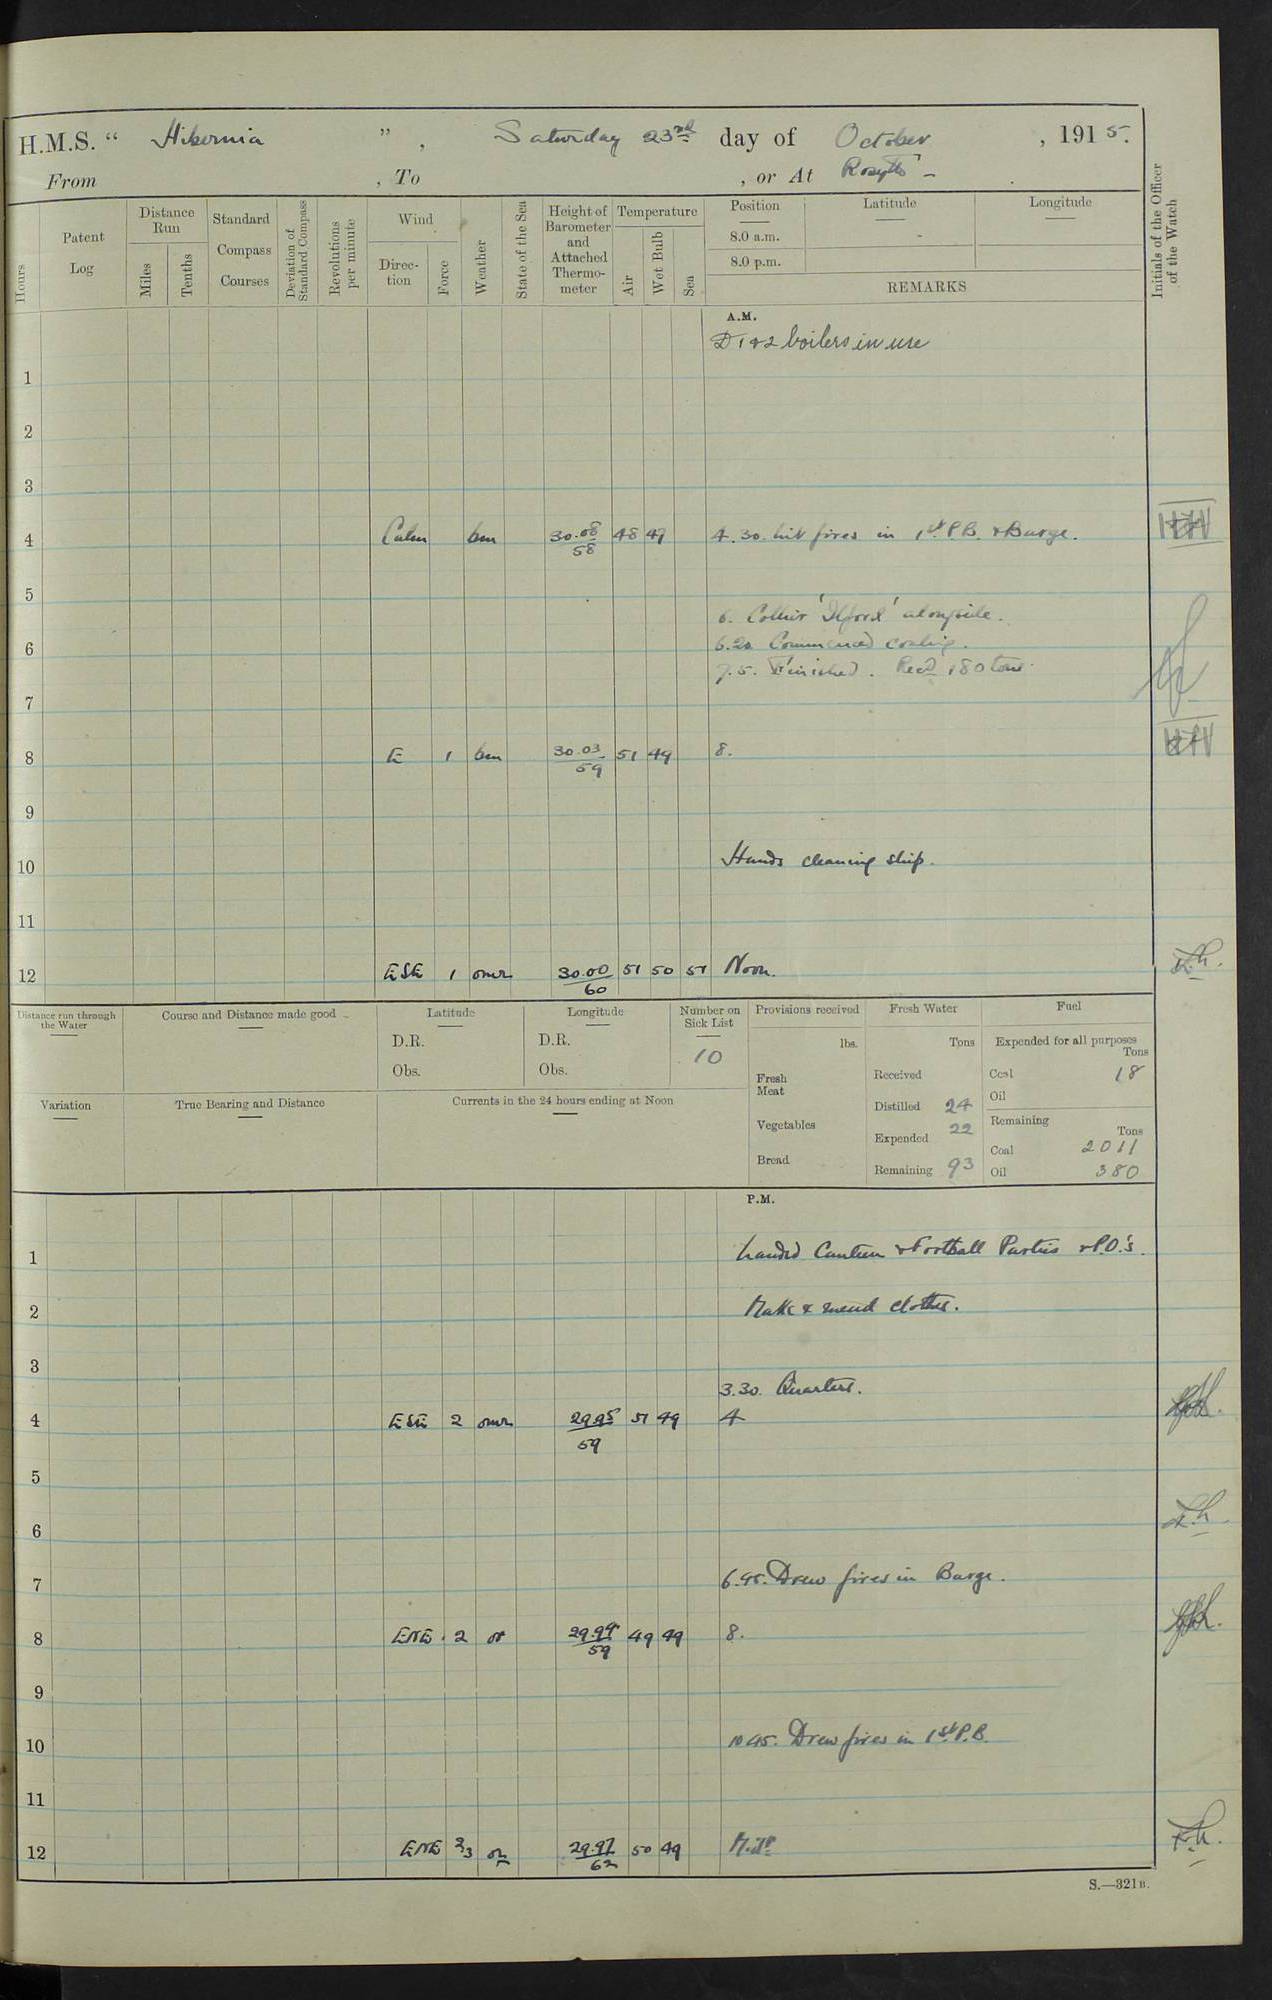 H.M.S. “ Hibernia ”, Saturday 23rd day of October, 1915.
From , To , or At Rosyth -
Hours
Patent Log
Distance Run
Miles
Tenths
Standard Compass Courses
Deviation of Standard Compass
Revolutions per minute
Wind
Direction
Force
Weather
State of the Sea
Height of Barometer and Attached Thermometer
Temperature
Air
Wet Bulb
Sea
Position
8.0 a.m.
8.0 p.m.
Latitude
Longitude
REMARKS
Initials of the Officer of the Watch
A.M.
D 1 & 2 boilers in use
1
2
3
4 Calm bm 30.08 58 48 47 4.30. Lit fires in 1st P.B. & Barge.
5
6. Collier 'Ilford' alongside.
6 6.20 Commenced coaling.
7.5. Finished. Recd 180 tons
7
8 E 1 bm 30.03 59 51 49 8.
9
10 Hands cleaning ship.
11
12 ESE 1 omr 30.00 60 51 50 51 Noon.
Distance run through the Water
Course and Distance made good
Latitude
D.R.
Obs.
Longitude
D.R.
Obs.
Number on Sick List
10
Provisions received
lbs.
Fresh Meat
Vegetables
Bread
Fresh Water
Tons
Received
Distilled 24
Expended 22
Remaining 93
Fuel
Expended for all purposes
Tons
Coal 18
Oil
Remaining
Tons
Coal 2011
Oil 380
Variation
True Bearing and Distance
Currents in the 24 hours ending at Noon
P.M.
1 Landed Canteen & Football Parties & P.O.'s.
2 Make & mend clothes.
3
3.30. Quarters.
4 ESE 2 omr 29.95 59 51 49 4
5
6
7 6.45. Drew fires in Barge.
8 ENE 2 or 29.99 59 49 49 8.
9
10 10.45. Drew fires in 1st P.B.
11
12 ENE 2/3 29.97 62 50 49 Midt
S.—321B.